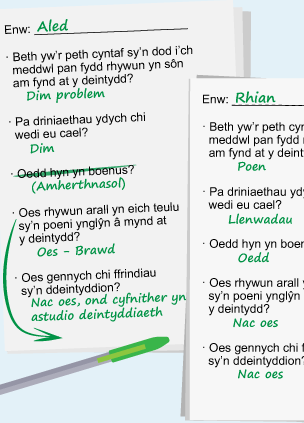 Enw: Aled
· Beth yw'r peth cyntaf sy'n dod i'ch
meddwl pan fydd rhywun yn sôn
am fynd at y deintydd?
Dim problem
· Pa driniaethau ydych chi
wedi eu cael?
Dim
· Oedd hyn yn boenus?
(Amherthnasol)
· Oes rhywun arall yn eich teulu
sy'n poeni ynglŷn â mynd at
y deintydd?
Oes - Brawd
· Oes gennych chi ffrindiau
sy'n ddeintyddion?
Nac oes, ond cyfnither yn
astudio deintyddiaeth
Enw: Rhian
· Beth yw'r peth
meddwl pan fydd
am fynd at y
Poen
· Pa driniaethau
wedi eu cael?
Llenwadau
· Oedd hyn yn
Oedd
· Oes rhywun arall
sy'n poeni ynglŷn
y deintydd?
Nac oes
· Oes gennych chi
sy'n ddeintyddion?
Nac oes